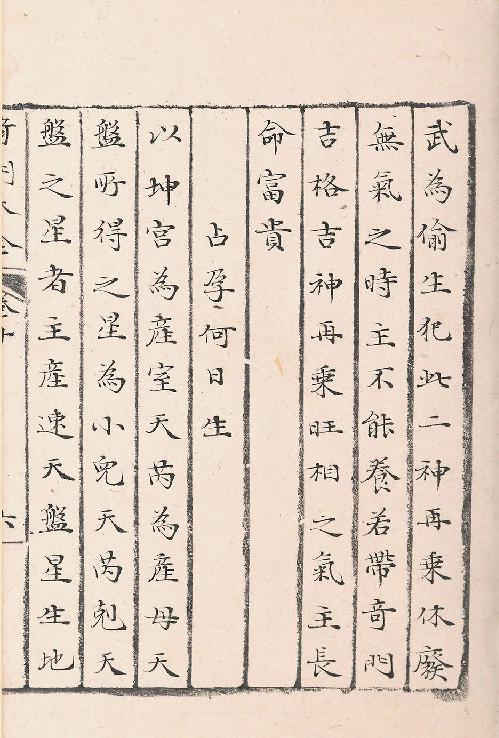 武為偷生犯此二神再乗休廢
無氣之時主不能養若帶奇門
吉格吉神再乗旺相之氣主長
命富貴
占孕何日生
以坤宮為產室天芮為產母天
盤所得之星為小兒天芮剋天
盤之星者主產速天盤星生地